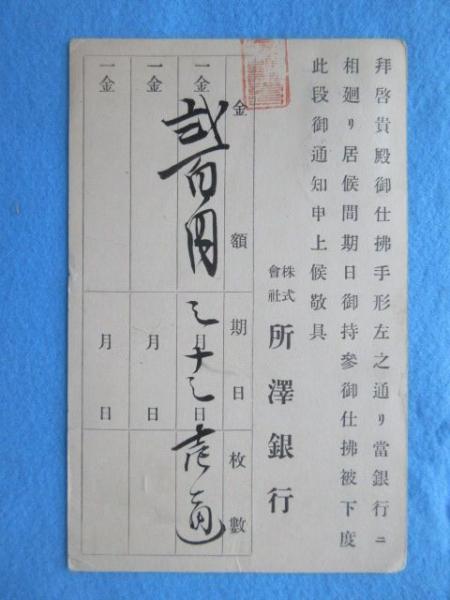 拜啓貴殿御仕拂手形左之通リ當銀行ニ
相廻リ居候間期日御持參御仕拂被下度
此段御通知申上候敬具
株式會社 所澤銀行
金額 期日 枚數
一金 貳百円 月 日 壱通
一金 月 日
一金 月 日